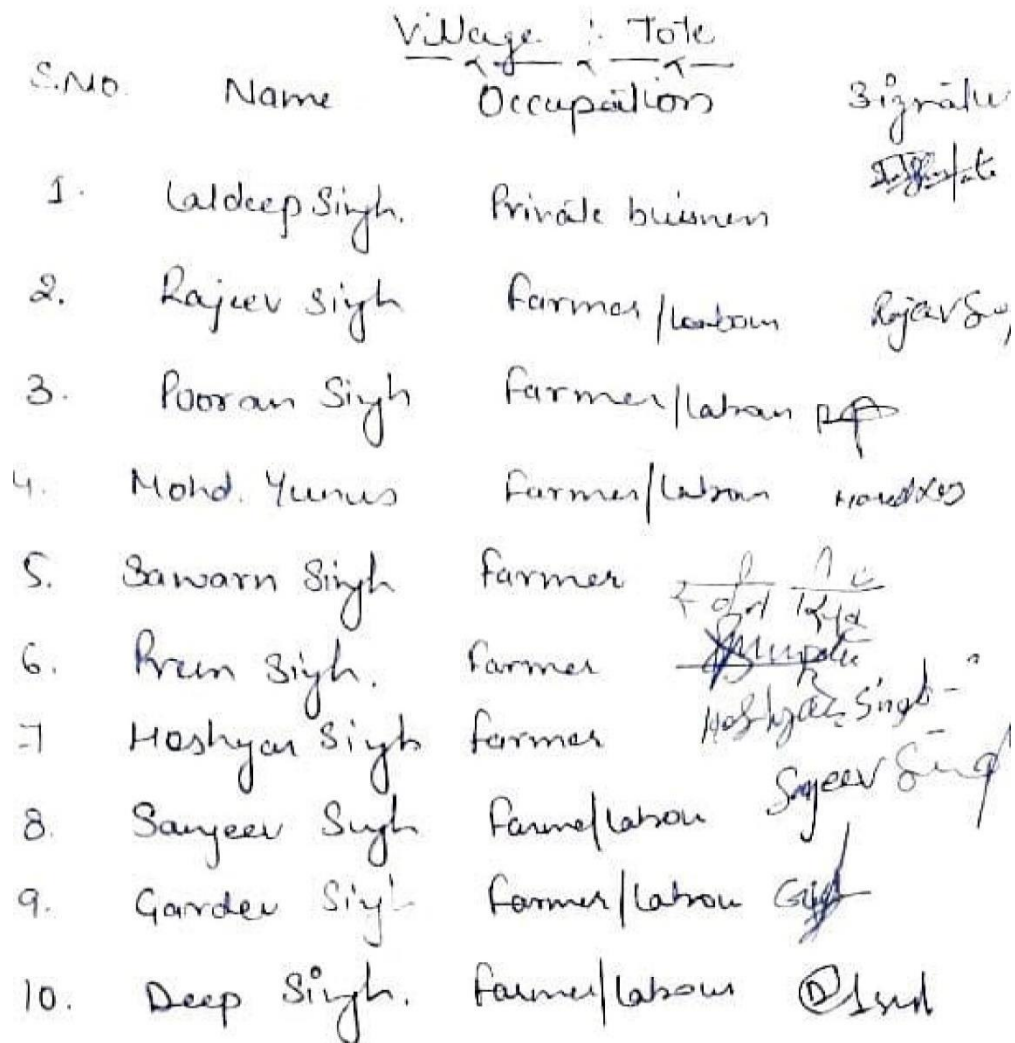 Village : Tote
S.No. Name Occupation Signatu
1. Laldeep Singh. Private buisness
2. Rajeev Singh Farmer/Labour Rajeev
3. Pooran Singh Farmer/Labour
4. Mohd. Yunus Farmer/Labour
5. Sawarn Singh Farmer
6. Prem Singh. Farmer
7 Hoshyar Singh Farmer Hoshyar Singh
8. Sanjeev Singh Farmer/Labour Sanjeev Singh
9. Gardev Singh Farmer/Labour
10. Deep Singh. Farmer/Labour